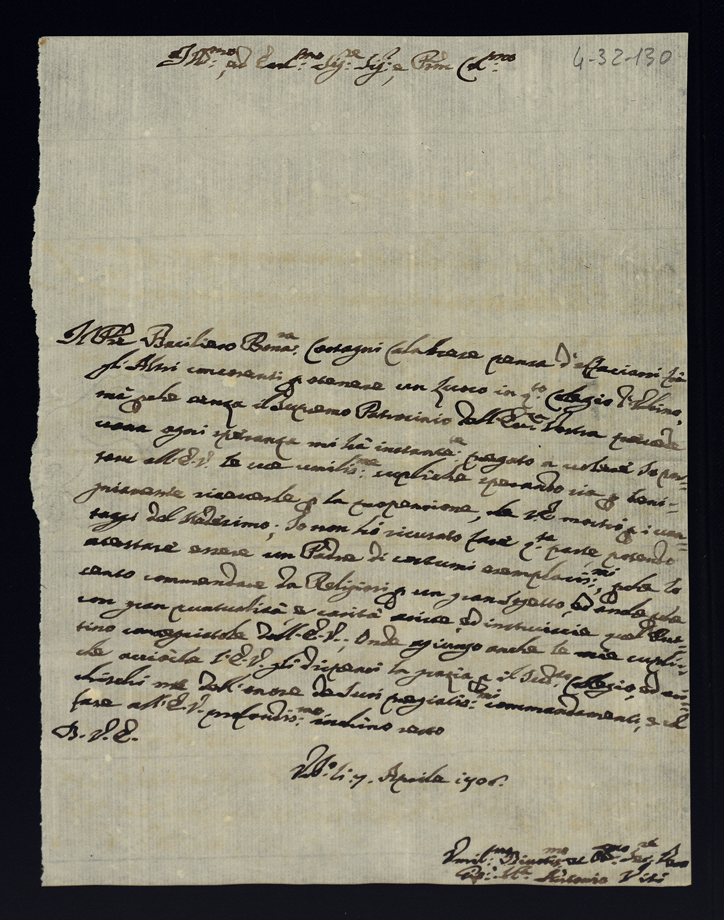 Ill.mo, ed Ecc.mo Sig.re Sig.re, e Pron Col.mo
4-32-130
Il Pre Basiliano Bona.ra Costagni Calabrese pensa d'
gl'Altri concorenti p otenere un luoco in q.to Colegio d'Urbino,
mà pche senza il supremo Patrocinio dell'Ecc.za Vostra
vana ogni speranza mi hà instante.te pregato a volere
tare all'E.V. le sue umilis.me supliche sperando sia p beni-
gniamente riceverle p la propensione, che V.E. mostra p i van-
taggi del Madesimo; Io non hò ricusato fare q.ta parte potendo
atestare essere un Padre di costumi esemplaris.mi, pche lo
sento commendare da Religiosi p un gran sogetto, ed anche che
con gran puntualità e carità asiste, ed instruischa quel
tino racogniatole dall'E.V., Onde agiungo anche le mie supli-
che acciochè l'E.V. gli dispensi la grazia p il Sud.to Colegio, ed
chischi me dell'onore de suoi pregiatis.mi commandamenti, e
fare all'E.V. profondis.mo inchino resto
D. V. E.
Urb.o li 7. Aprile 1706.
Umil.mo Divotis.mo et Ob.mo Ser.re Vero
Antonio Viti